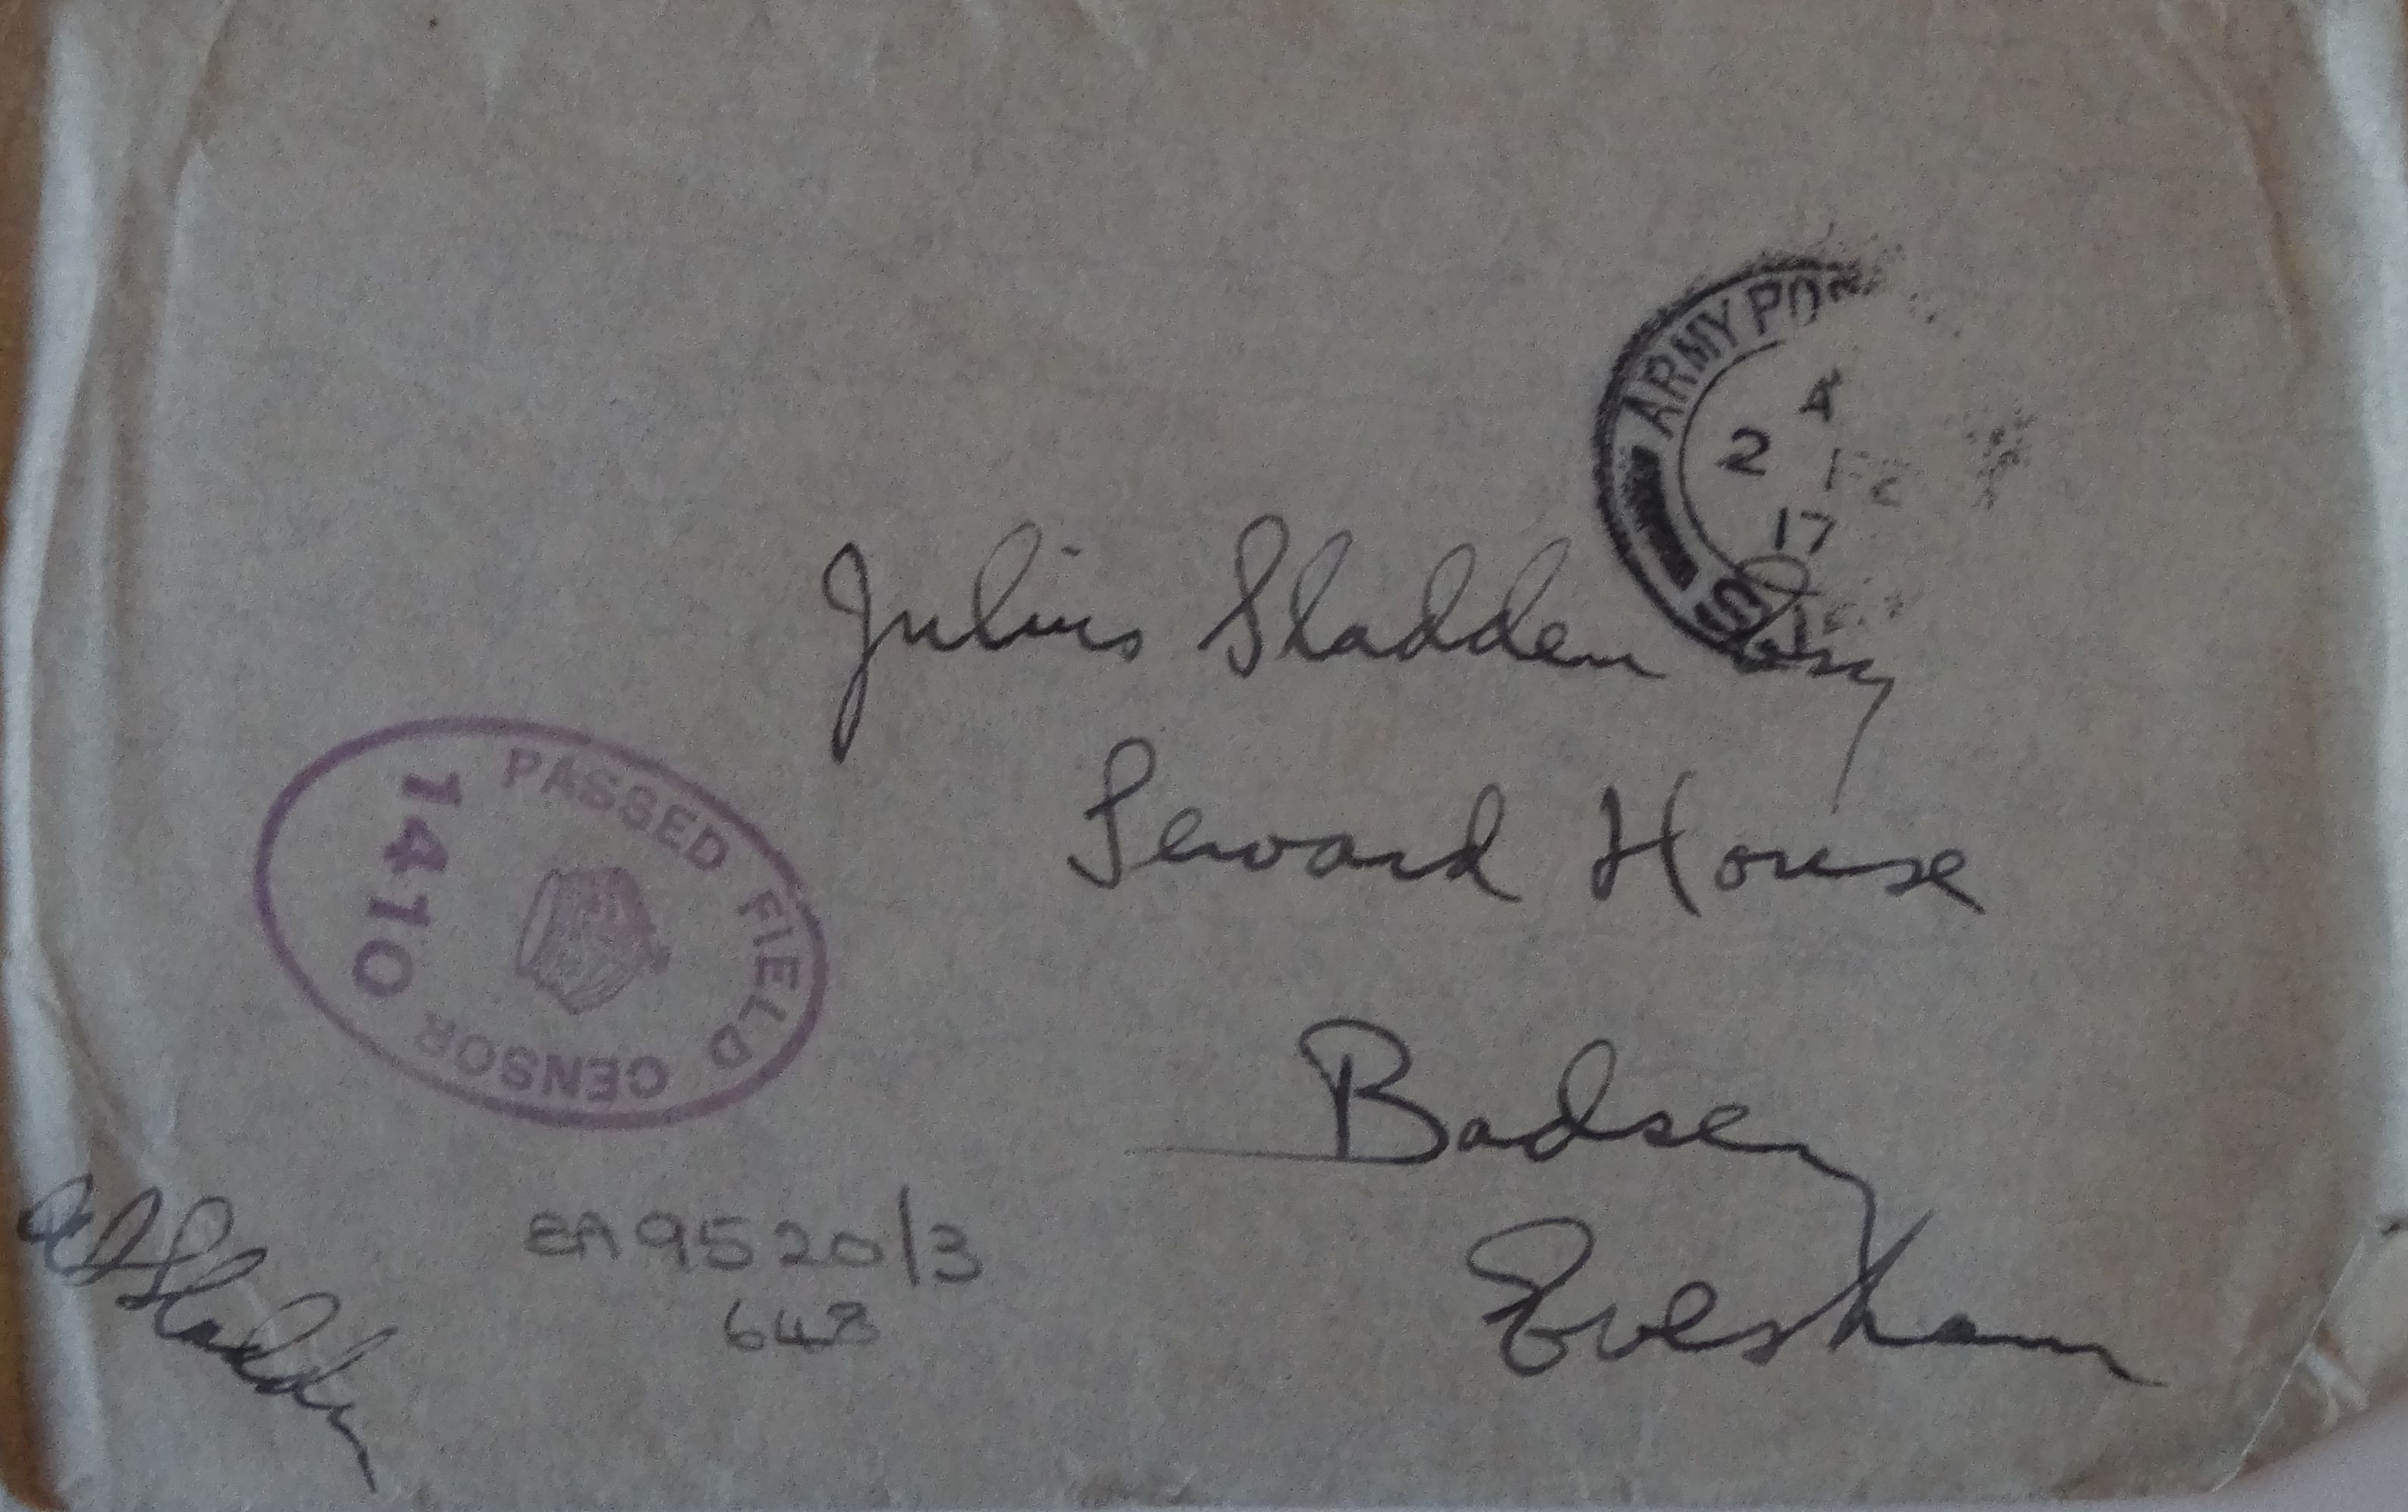 ARMY PO
A
2 FE
17
S
Julius Sladden Esq
Seward House
Badsey
Evesham
PASSED FIELD CENSOR
1410
Sladden
EA 9520/3
648